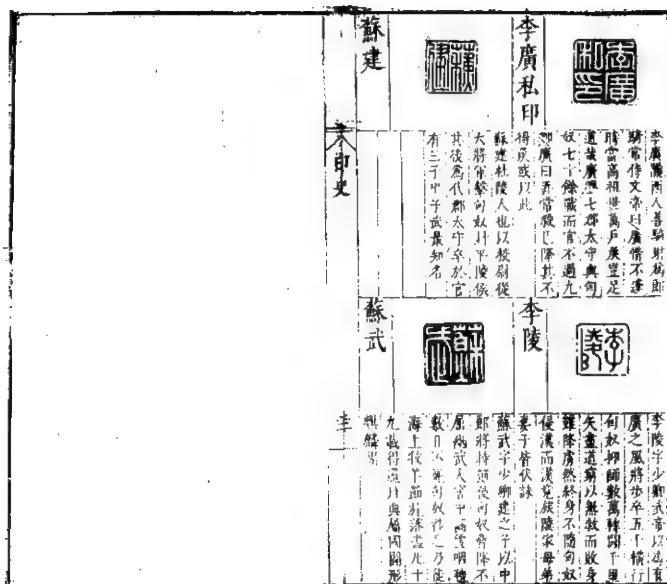 李廣私印
李廣隴西人善騎射為郎
騎常侍文帝曰廣惜不逢
時當高祖世萬戶矦豈足
道哉廣歷七郡太守與匈
奴七十餘戰而官不過九
卿廣曰吾嘗殺已降其不
得矦或以此
蘇建
蘇建杜陵人也以校尉從
大將軍擊匈奴封平陵侯
其後為代郡太守卒於官
有三子中子武最知名
李陵
李陵字少卿武帝以為有
廣之風將步卒五千橫行
匈奴抑師數萬轉鬪千里
矢盡道窮以無救而敗身
雖降虜然終身不
優漢而漢竟族陵家母弟
妻子皆伏誅
蘇武
蘇武字少卿建之子以中
郎將持節使匈奴脅降不
屈幽武大窖中
數日不死匈奴
海上牧羊節旄落盡凡十
九載得還拜典屬國圖形
麒麟閣
印史